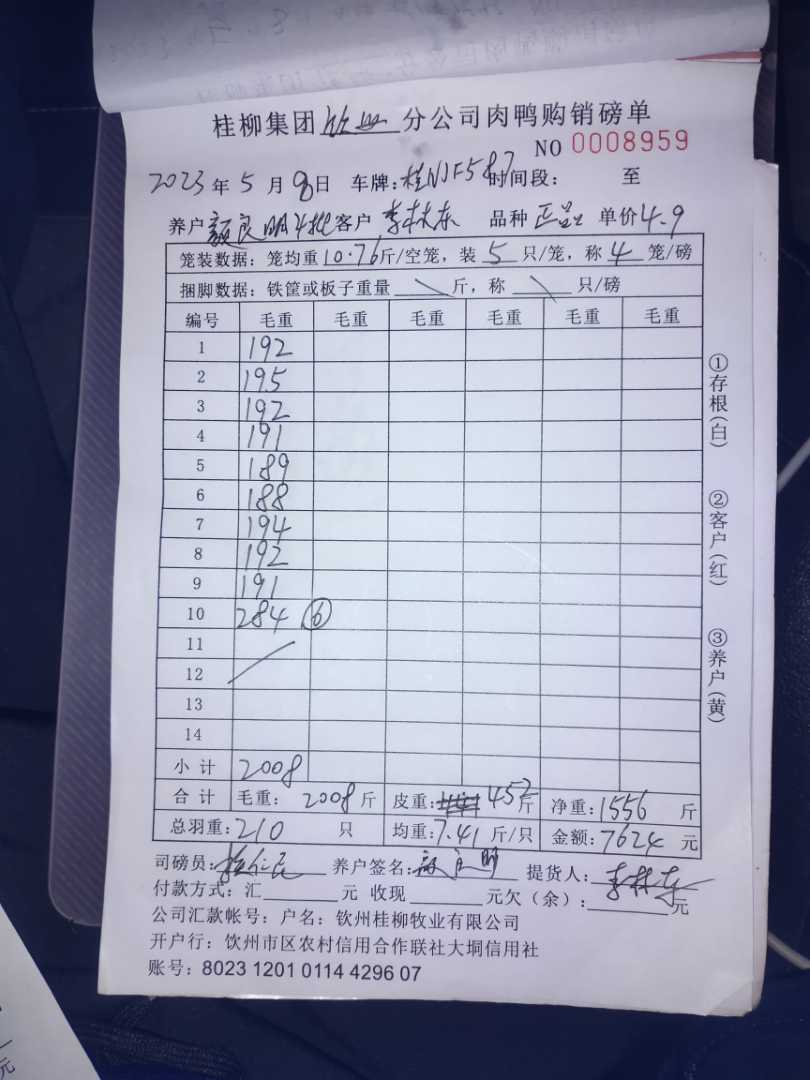 桂柳集团钦州分公司肉鸭购销磅单
NO 0008959
2023年5月8日 车牌:桂NJF587 时间段: 至
养户 颜良明4批 客户 李林东 品种 正品 单价4.9
笼装数据: 笼均重10.76斤/空笼, 装5只/笼, 称4笼/磅
捆脚数据: 铁筐或板子重量\斤, 称\只/磅
编号 毛重 毛重 毛重 毛重 毛重 毛重
1 192
2 195
3 192
4 191
5 189
6 188
7 194
8 192
9 191
10 284 ⑥
11
12
13
14
小计 2008
合计 毛重: 2008斤 皮重: 452斤 净重:1556 斤
总羽重:210 只 均重:7.41斤/只 金额:7624元
司磅员: 养户签名:颜良明 提货人:李林东
付款方式: 汇 元 收现 元欠(余): 元
公司汇款帐号: 户名: 钦州桂柳牧业有限公司
开户行: 饮州市区农村信用合作联社大垌信用社
账号: 8023 1201 0114 4296 07
①存根(白)
②客户(红)
③养户(黄)
元